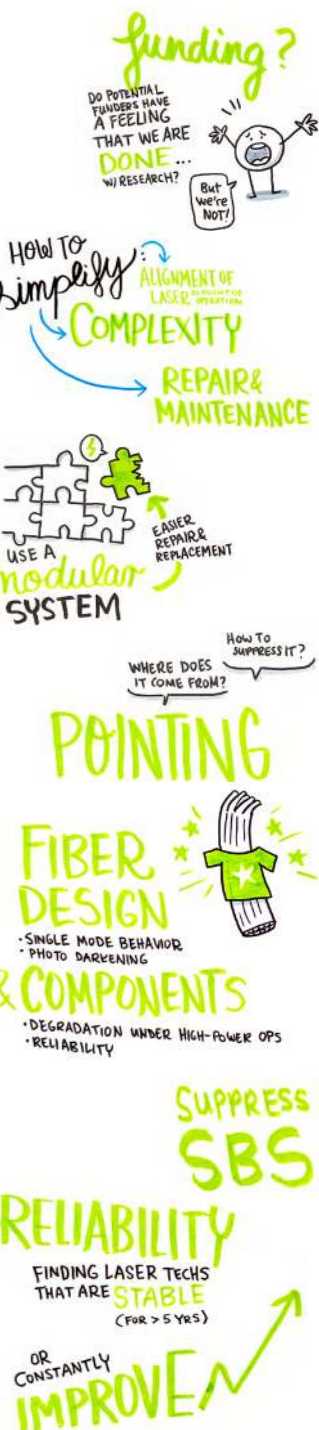 funding?
DO POTENTIAL
FUNDERS HAVE
A FEELING
THAT WE ARE
DONE...
W/ RESEARCH?
But
we're
NOT!
HOW TO
simplify:
ALIGNMENT OF
LASER
OPERATION
COMPLEXITY
REPAIR &
MAINTENANCE
EASIER
REPAIR &
REPLACEMENT
USE A
modular
SYSTEM
HOW TO
SUPPRESS IT?
WHERE DOES
IT COME FROM?
POINTING
FIBER
DESIGN
• SINGLE MODE BEHAVIOR
• PHOTO DARKENING
& COMPONENTS
• DEGRADATION UNDER HIGH-POWER OPS
• RELIABILITY
SUPPRESS
SBS
RELIABILITY
FINDING LASER TECHS
THAT ARE STABLE
(FOR > 5 YRS)
OR
CONSTANTLY
IMPROVE